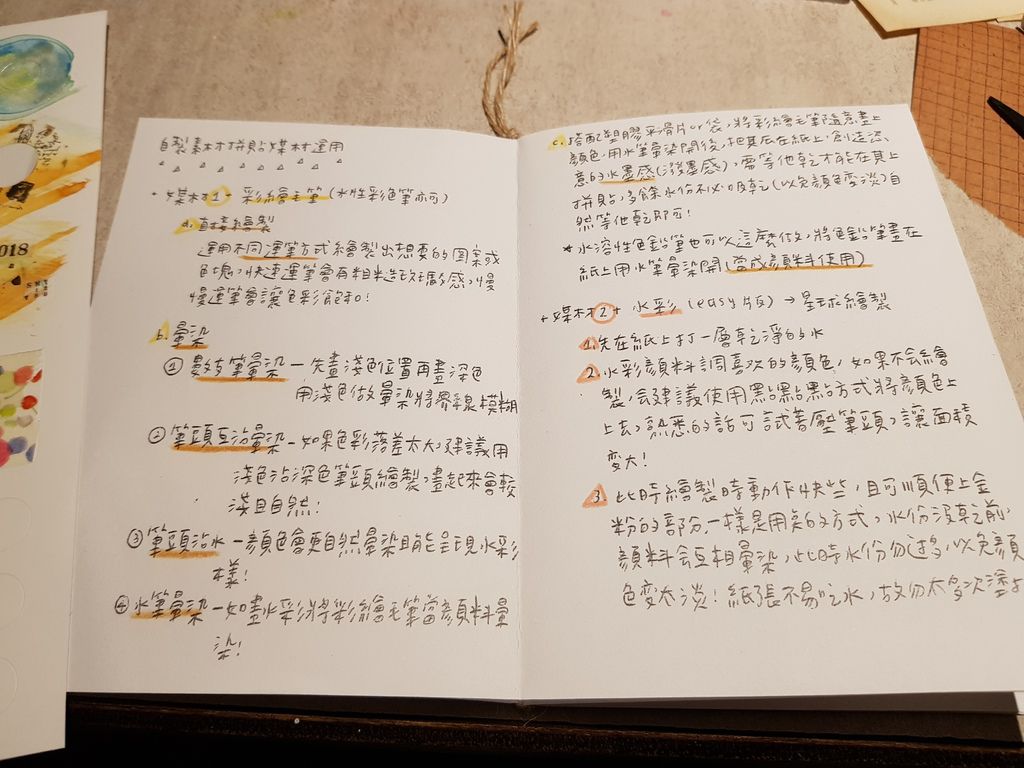 2018
自製素材拼貼媒材運用
+ 媒材1 - 彩繪毛筆 (水性彩色筆亦可)
a. 直接繪製
運用不同運筆方式繪製出想要的圖案或
色塊,快速運筆會有粗糙斑駁感,慢
慢運筆會讓色彩飽和!
b. 暈染
① 數支筆暈染 - 先畫淺色位置再畫深色
用淺色做暈染將界線模糊
② 筆頭互沾暈染 - 如果色彩落差太大,建議用
淺色沾深色筆頭繪製,畫起來會較
淺且自然!
③ 筆頭沾水 - 顏色會更自然暈染且能呈現水彩
樣!
④ 水筆暈染 - 如畫水彩,將彩繪毛筆當顏料暈
染!
c. 搭配塑膠平滑片or袋,將彩繪毛筆隨意畫上
顏色,用水筆暈染開後,把其底在紙上,創造恣
意的水墨感(潑墨感),需等他乾才能在其上
拼貼,多餘水份不必吸乾(以免顏色變淡)自
然等他乾即可!
* 水溶性色鉛筆也可以這麼做,將色鉛筆畫在
紙上用水筆暈染開(當成顏料使用)
+ 媒材2 + 水彩 (easy版) → 星球繪製
1. 先在紙上打一層乾淨的水
2. 水彩顏料調喜歡的顏色,如果不會繪
製,會建議使用點點點方式將顏色上
上去,熟悉的話可試著壓筆頭,讓面積
變大!
3. 此時繪製時動作快些,且可順便上金
粉的部份,一樣是用點的方式,水份沒乾前,
顏料會互相暈染,此時水份勿過多,以免顏
色變太淡!紙張不易吃水,故勿太多次塗